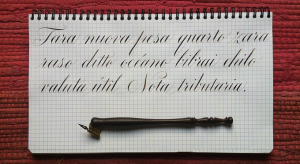 Tara nueva pesa quarto zara
raso ditto océano bibrai chilo
valuta útil Nota tributaria.